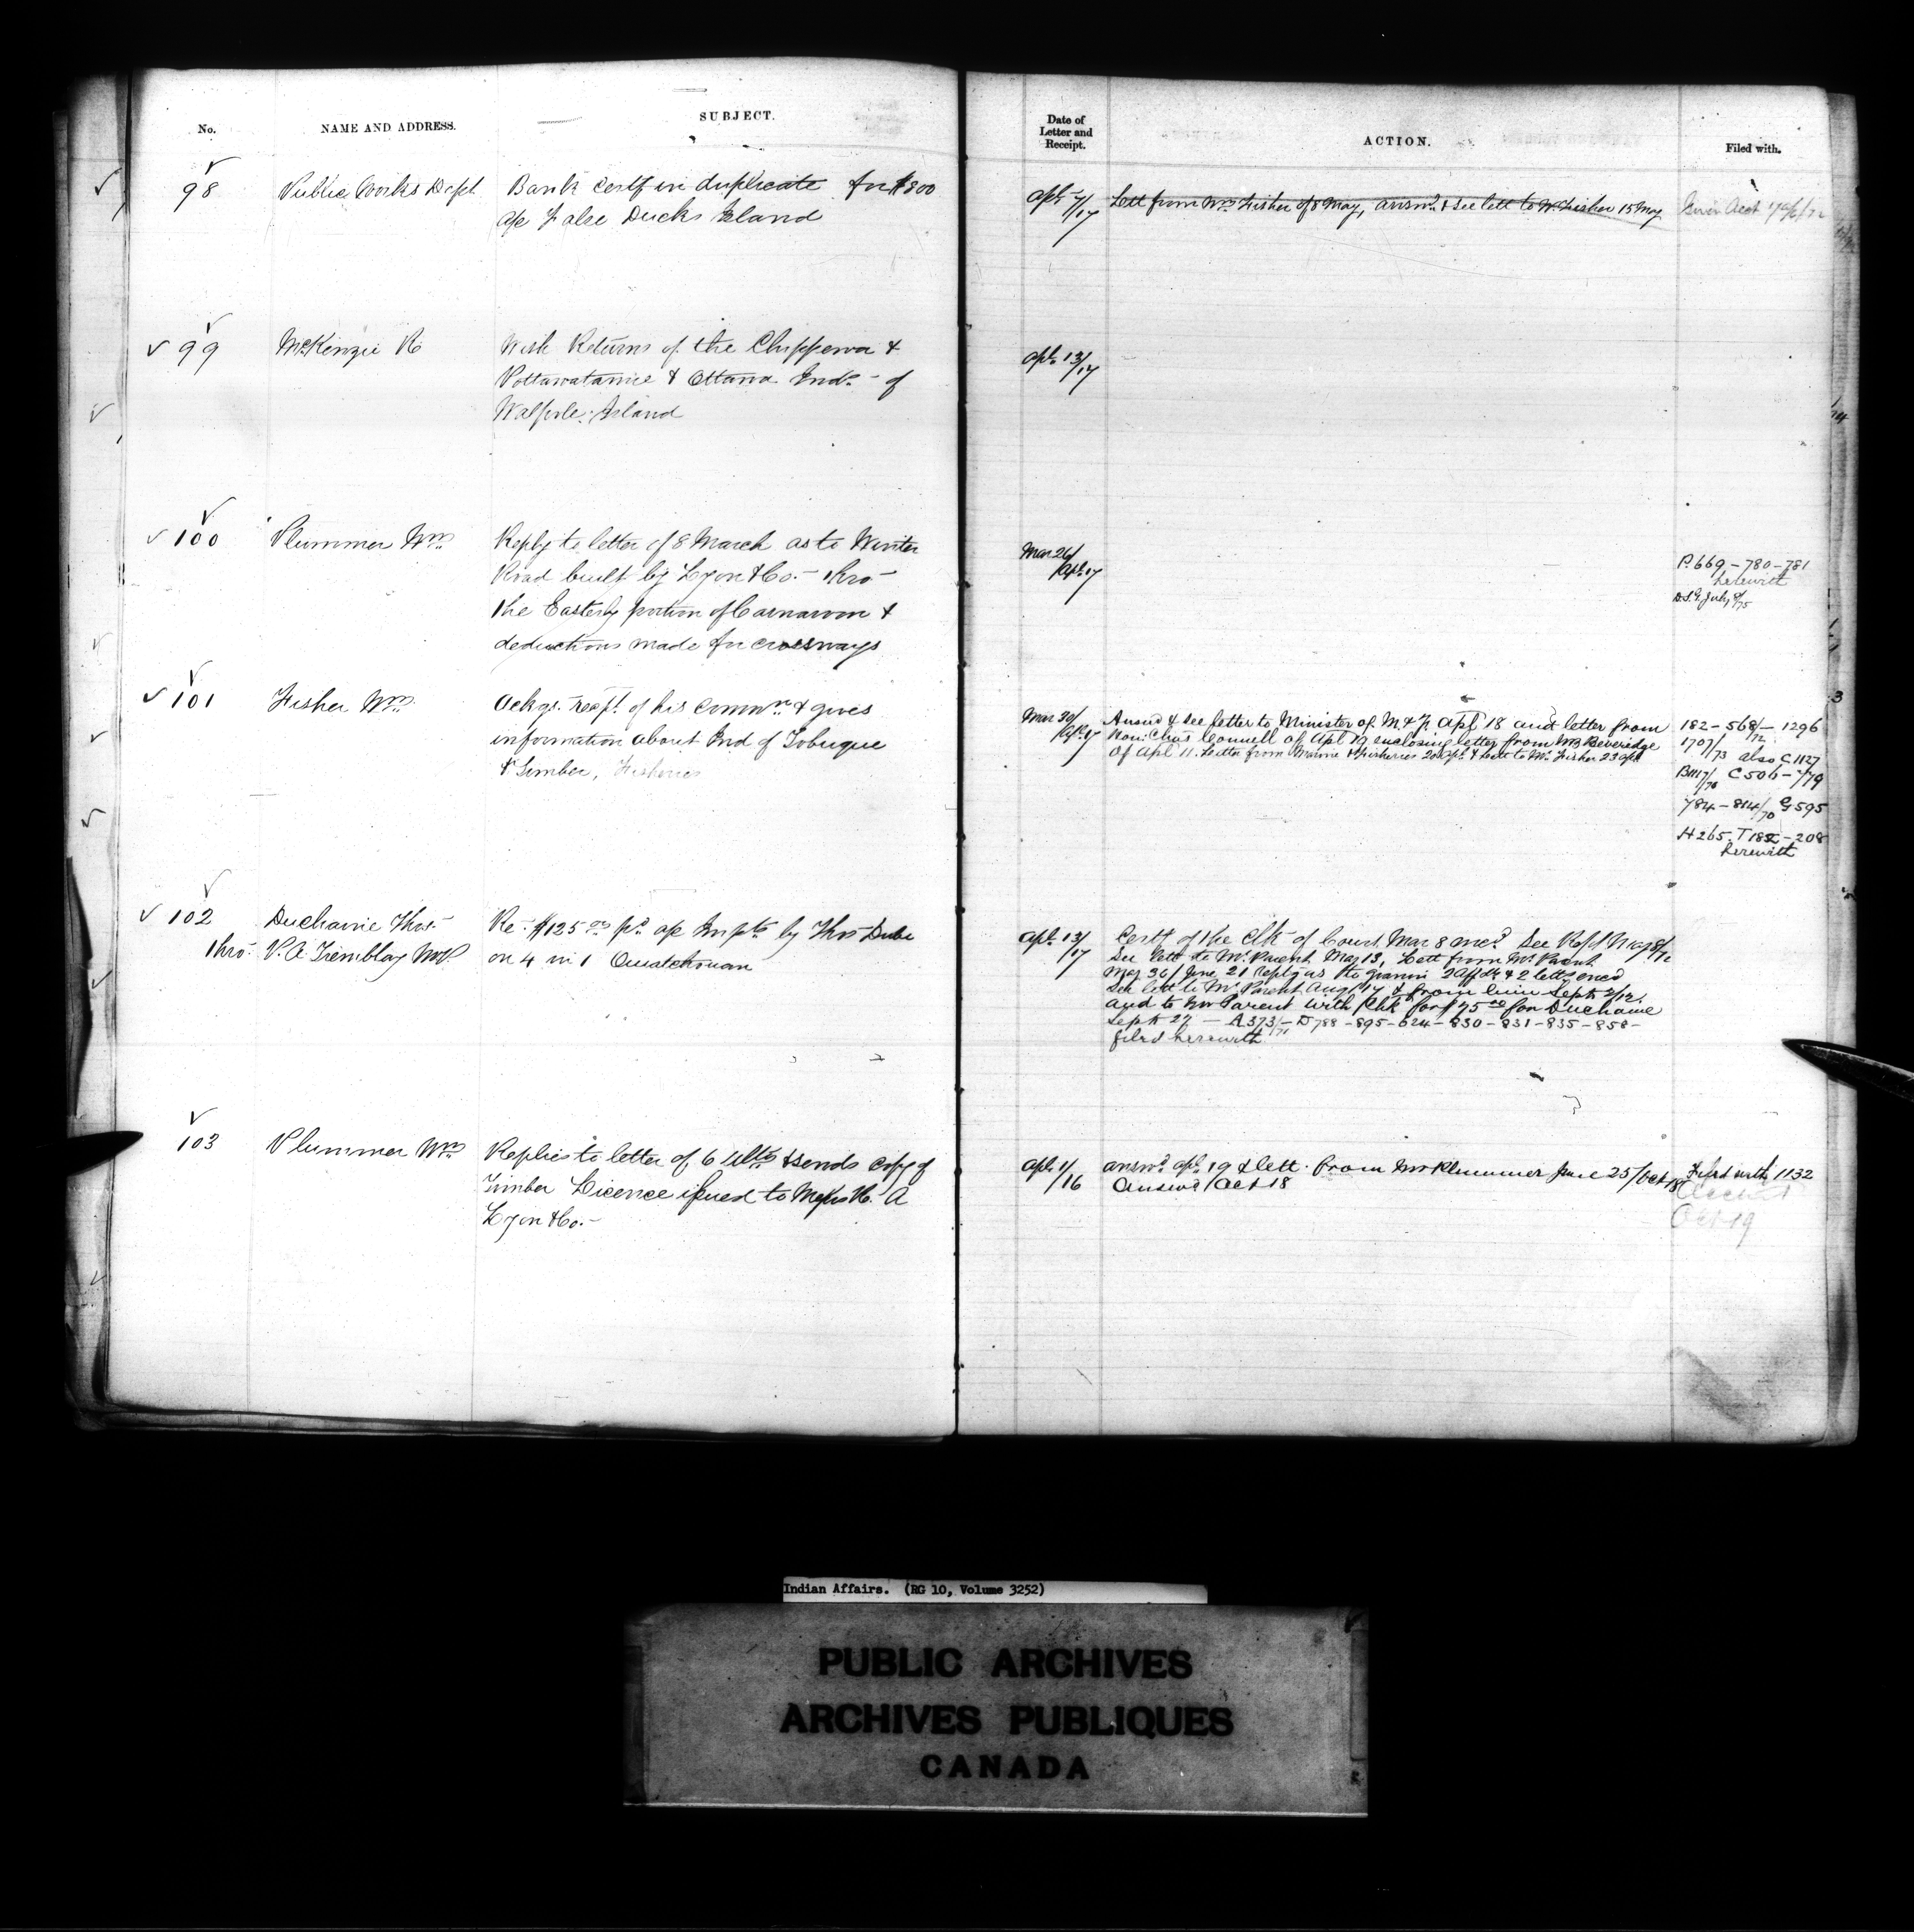 No.
NAME AND ADDRESS.
SUBJECT.
Date of
Letter and
Receipt.
ACTION.
Filed with.
98
Public Works Dept
Bank Certf in duplicate for $800
a/c False Ducks Island
Apl 7/17
Lett from Wm Fisher of 8 May, answd. & see lett to W. Fisher 15 May
99
McKenzie R
With Returns of the Chippewa &
Pottawatamie & Ottawa Inds. of
Walpole Island
Apl. 13/17
100
Plummer Wm
Reply to letter of 8 March as to Winter
Road built by Lyon & Co. thro
the Easterly portion of Carnarvon &
deductions made for crossways
Mar 26/Apl. 17
P. 669 - 780 - 781
herewith
D.S.G. July 8/75
101
Fisher Wm
Ackgs. recpt. of his Commn & gives
information about Ind of Tobique
& Timber, Fisheries
Mar 30/Apl. 17
Answd & see letter to Minister of M & F. Apl 18 and letter from
Hon: Chas Connell of Apl 19 enclosing letter from Beveridge
of Apl 11. Letter from Marine & Fisheries 20 Apl. & Lett to Mr. Fisher 23 Apl
182 - 568/72 - 1296
1707/73 also C 1127
C 506 - 779
784 - 814/70 G 595
H 265. T 182 - 208
herewith
102
Ducharme Thos.
thro. P. A. Tremblay MP.
Re. $125.00 pd. a/c Impts by Thos Dube
on 4 in 1 Ouiatchouan
Apl. 13/17
Certf of the Clk of Court Mar 8 encd. See Rept May 8/72
See lett to Mr. Parent May 13, Lett from Mr. Parent
May 30/June 21 reply as to 2 Affdts & 2 letts encd
See lett to Mr Parent Aug 14 & from him Septr 2/12.
and to Mr Parent with Chk for $75.00 for Ducharme
Septr 27 — A 373/71 - D 788 - 895 - 624 - 830 - 831 - 835 - 858 -
filed herewith
103
Plummer Wm
Replies to letter of 6 Ulto & sends copy of
Timber Licence issued to Messrs R. A
Lyon & Co. -
Apl. 1/16
answd. Apl. 19 & lett. from Mr Plummer June 25/Oct 18
Answd Oct 18
Filed with 1132
Oct 19
Indian Affairs. (RG 10, Volume 3252)
PUBLIC ARCHIVES
ARCHIVES PUBLIQUES
CANADA